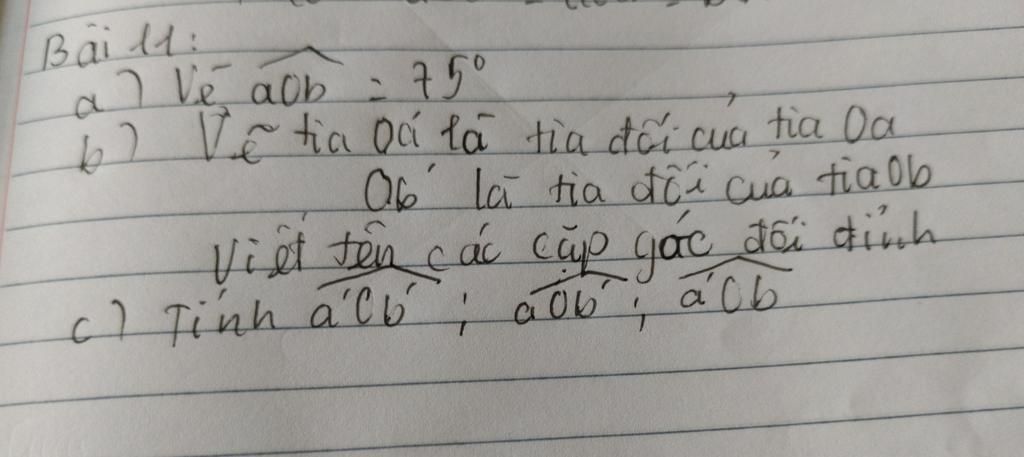 Bài 11:
a) Vẽ aOb = 75°
b) Vẽ tia Oa' là tia đối của tia Oa
Ob' là tia đối của tia Ob
Viết tên các cặp góc đối đỉnh
c) Tính a'Ob' ; aOb' ; a'Ob